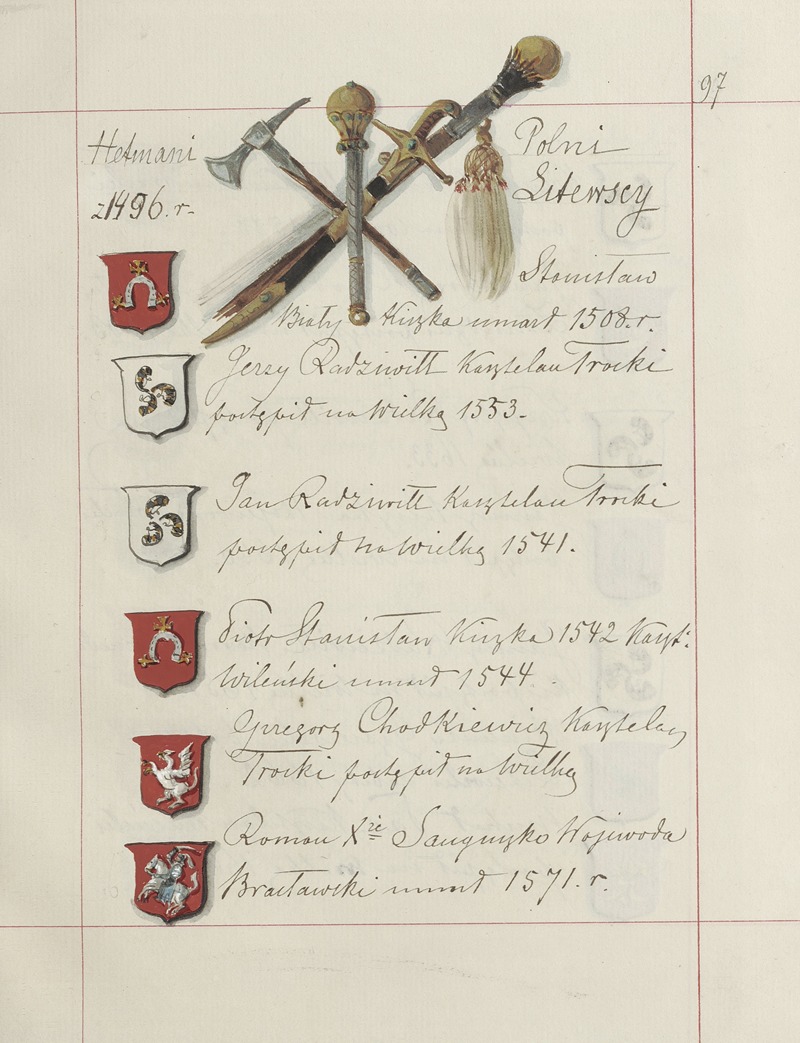 97
Hetmani Polni
z 1496. r. Litewscy
Stanisław
Biały Kiszka umarł 1508. r.
Jerzy Radziwiłł Kasztelan Trocki
postąpił na Wielką 1553.
Jan Radziwiłł Kasztelan Trocki
postąpił na Wielką 1541.
Piotr Stanisław Kiszka 1542 Kaszt:
Wileński umarł 1544.
Grzegorz Chodkiewicz Kasztelan
Trocki postąpił na Wielką
Roman Xże Sanguszko Wojewoda
Bracławski umarł 1571. r.